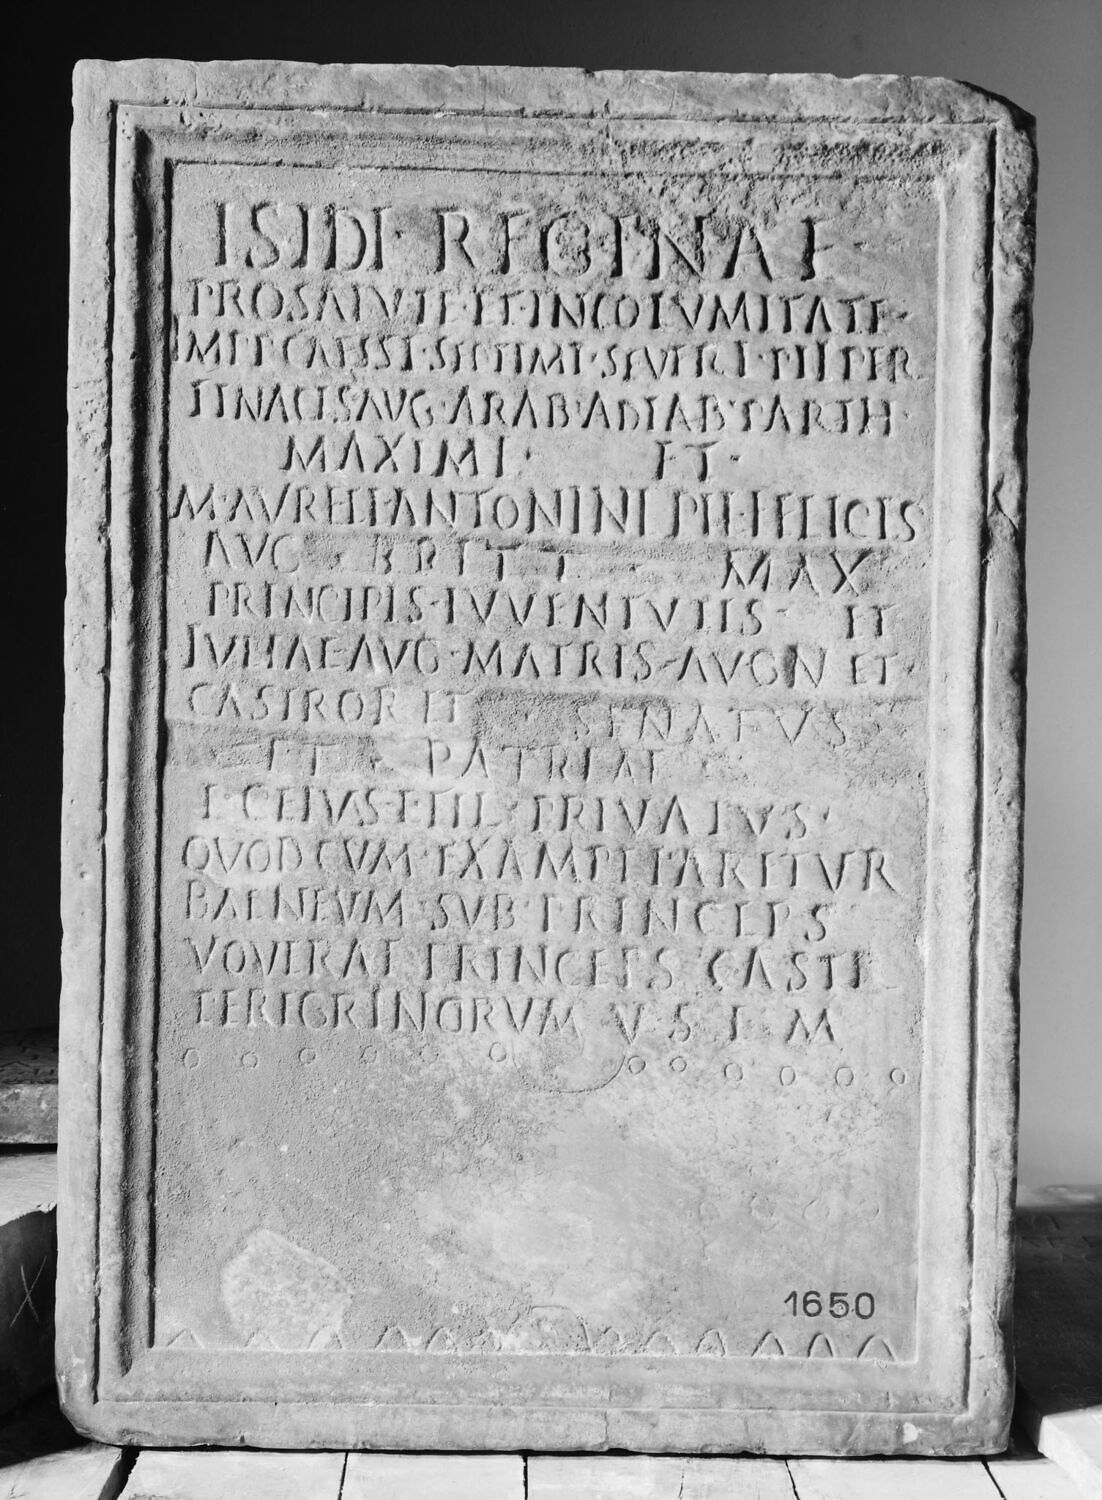 ISIDI · REGINAE ·
PRO SALVTE · ET · INCOLVMITATE ·
IMPP CAESS L · SEPTIMI · SEVERI · PII PER
TINACIS AVG · ARAB · ADIAB · PARTH ·
MAXIMI · ET ·
M · AVRELI · ANTONINI PII · FELICIS
AVG · BRITT · MAX
PRINCIPIS · IVVENTVTIS · ET
IVLIAE · AVG · MATRIS · AVG N ET ·
CASTROR ET · SENATVS
ET · PATRIAE
L · CEIVS · L · FIL · PRIVATVS ·
QVOD CVM · EXAMPLIARETVR
BALNEVM · SVB · PRINCEPS
VOVERAT PRINCEPS CASTR
PEREGRINORVM V S L M
1650